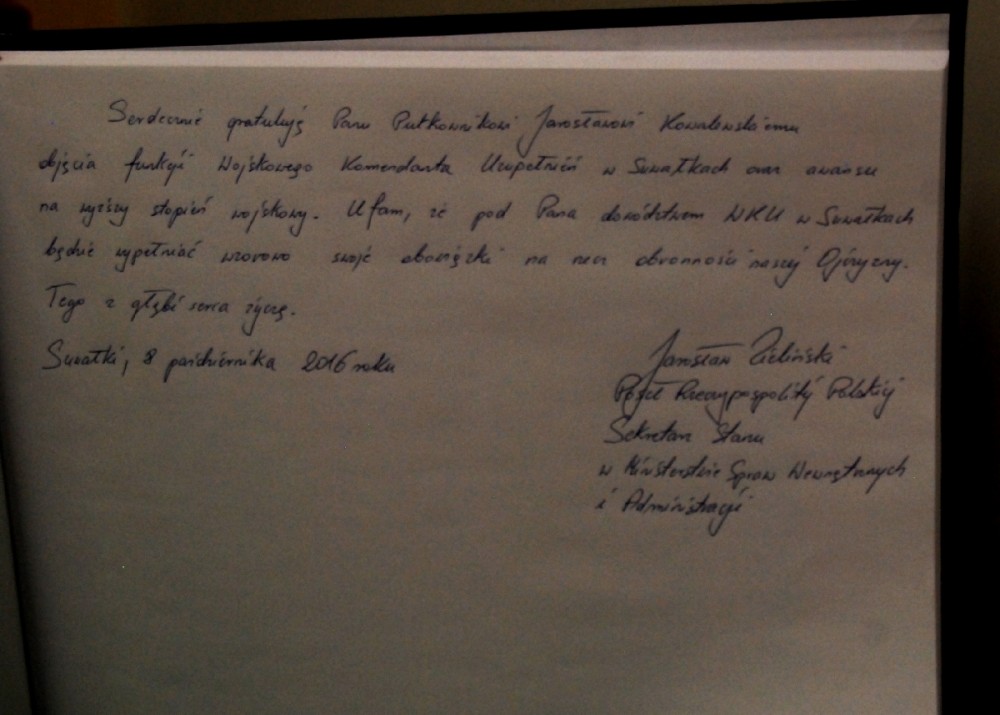 Serdecznie gratuluję Panu Pułkownikowi Jarosławowi Kowalewskiemu
objęcia funkcji Wojskowego Komendanta Uzupełnień w Suwałkach oraz awansu
na wyższy stopień wojskowy. Ufam, że pod Pana dowództwem WKU w Suwałkach
będzie wypełniać wzorowo swoje obowiązki na rzecz obronności naszej Ojczyzny.
Tego z głębi serca życzę.
Suwałki, 8 października 2016 roku
Jarosław Zieliński
Poseł Rzeczypospolitej Polskiej
Sekretarz Stanu
w Ministerstwie Spraw Wewnętrznych
i Administracji